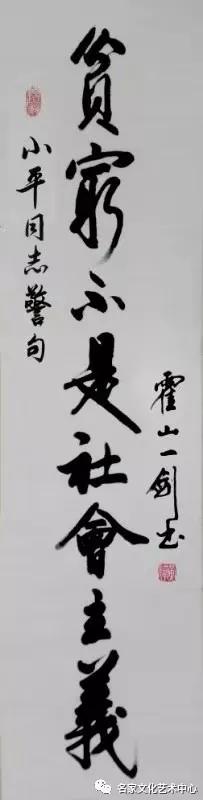 貧窮不是社會主義
小平同志警句
霍山一劍书
名家文化艺术中心